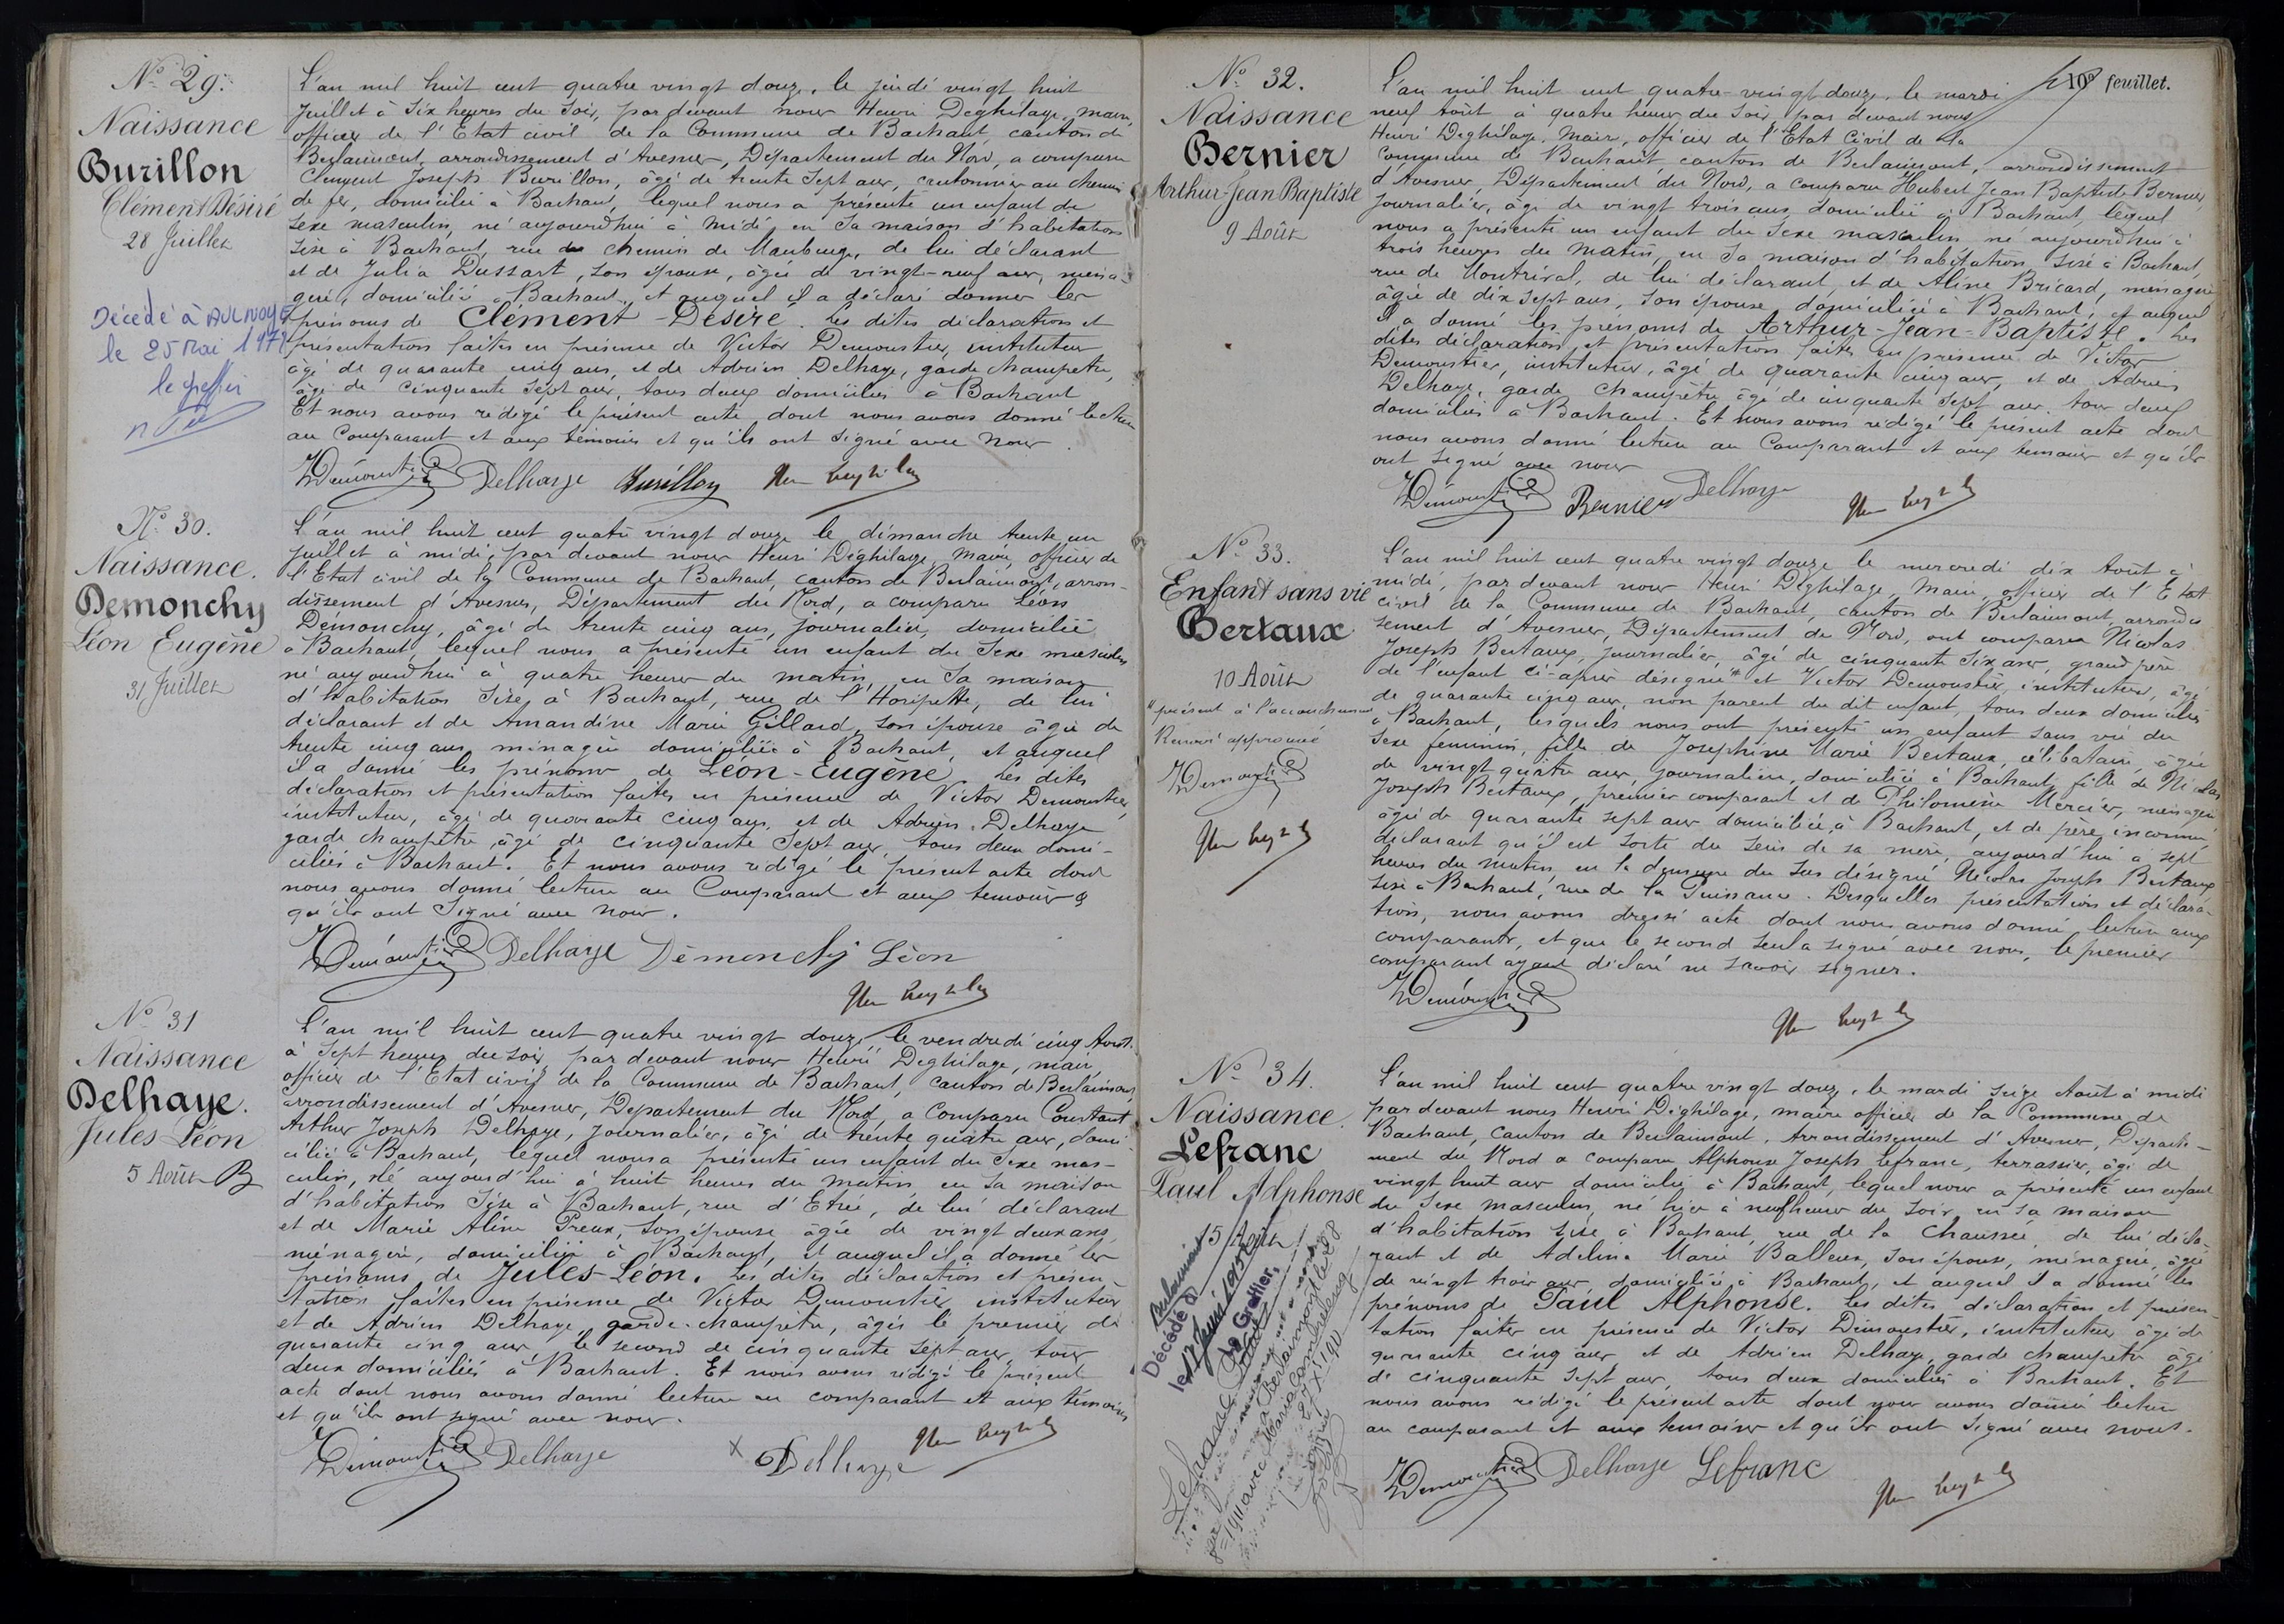 Nº 29.
Naissance
Burillon
Clément Désiré
28 Juillet
Décédé à AULNOYE
le 25 Mai 197
le greffier
L'an mil huit cent quatre vingt douze, le jeudi vingt huit
Juillet à six heures du soir, par devant nous Henri Deghilage, maire,
officier de l'Etat civil de la Commune de Bachant, canton de
Berlaimont, arrondissement d'Avesnes, Département du Nord, a comparu
Clément Joseph Burillon, âgé de trente sept ans, cantonnier au chemin
de fer, domicilié à Bachant, lequel nous a présenté un enfant du
sexe masculin, né aujourd'hui à midi, en sa maison d'habitation
sise à Bachant, rue du chemin de Maubeuge, de lui déclarant
et de Julia Dussart, son épouse, âgée de vingt-neuf ans, ména-
gère, domiciliée à Bachant, et auquel il a déclaré donner les
prénoms de Clément-Désiré. Les dites déclaration et
présentation faites en présence de Victor Demoustier, instituteur
âgé de quarante cinq ans, et de Adrien Delhaye, garde champêtre,
âgé de cinquante sept ans, tous deux domiciliés à Bachant
Et nous avons rédigé le présent acte dont nous avons donné lecture
au Comparant et aux témoins et qu'ils ont signé avec nous.
VDemoustier Delhaye Burillon Hen Deghilage
Nº 30.
Naissance.
Demonchy
Léon Eugène
31 Juillet
L'an mil huit cent quatre vingt douze le dimanche trente un
Juillet à midi, par devant nous Henri Déghilage, maire, officier de
l'Etat civil de la Commune de Bachant, canton de Berlaimont, arron-
dissement d'Avesnes, Département du Nord, a comparu Léon
Demonchy, âgé de trente cinq ans, journalier, domicilié
à Bachant, lequel nous a présenté un enfant du sexe masculin
né aujourd'hui à quatre heures du matin, en sa maison
d'habitation sise à Bachant, rue de l'Horipette, de lui
déclarant et de Amandine Marie Gillard, son épouse âgée de
trente cinq ans, ménagère domiciliée à Bachant, et auquel
il a donné les prénoms de Léon-Eugène. Les dites
déclaration et présentation faites en présence de Victor Demoustier
instituteur, âgé de quarante cinq ans, et de Adrien Delhaye
garde champêtre, âgé de cinquante sept ans, tous deux domi-
ciliés à Bachant. Et nous avons rédigé le présent acte dont
nous avons donné lecture au Comparant et aux témoins &
qu'ils ont signé avec nous.
VDemoustier Delhaye Démonchy Léon
Hen Deghilage
Nº 31
Naissance
Delhaye.
Jules Léon
5 Août
L'an mil huit cent quatre vingt douze, le vendredi cinq Août
à sept heures du soir, par devant nous Henri Deghilage, maire,
officier de l'Etat civil de la Commune de Bachant, canton de Berlaimont,
arrondissement d'Avesnes, Département du Nord, a comparu Constant
Arthur Joseph Delhaye, journalier, âgé de trente quatre ans, domi
cilié à Bachant, lequel nous a présenté un enfant du sexe mas-
culin, né aujourd'hui à huit heures du matin en sa maison
d'habitation sise à Bachant, rue d'Etrée, de lui déclarant
et de Marie Aline Preux, son épouse âgée de vingt deux ans,
ménagère, domiciliée à Bachant, et auquel il a donné les
prénoms de Jules-Léon. Les dites déclaration et présen-
tation faites en présence de Victor Demoustier instituteur
et de Adrien Delhaye, garde-champêtre, âgés le premier de
quarante cinq ans, le second de cinquante sept ans, tous
deux domiciliés à Bachant. Et nous avons rédigé le présent
acte dont nous avons donné lecture au comparant et aux témoins
et qu'ils ont signé avec nous.
VDemoustier Delhaye x Delhaye Hen Deghilage
10e feuillet.
Nº 32.
Naissance
Bernier
Arthur-Jean Baptiste
9 Août
L'an mil huit cent quatre-vingt douze, le mardi
neuf Août à quatre heures du soir, par devant nous
Henri Deghilage, Maire, officier de l'Etat Civil de la
Commune de Bachant, canton de Berlaimont, arrondissement
d'Avesnes, Département du Nord, a comparu Hubert Jean Baptiste Bernier,
journalier, âgé de vingt trois ans, domicilié à Bachant, lequel
nous a présenté un enfant du sexe masculin né aujourd'hui à
trois heures du matin, en sa maison d'habitation sise à Bachant,
rue de Montrival, de lui déclarant, et de Aline Bricard, ménagère
âgée de dix sept ans, son épouse, domiciliée à Bachant, et auquel
il a donné les prénoms de Arthur-Jean-Baptiste. Les
dites déclaration et présentation faites en présence de Victor
Demoustier, instituteur, âgé de quarante cinq ans, et de Adrien
Delhaye, garde champêtre âgé de cinquante sept ans, tous deux
domiciliés à Bachant. Et nous avons rédigé le présent acte dont
nous avons donné lecture au Comparant et aux témoins et qu'ils
ont signé avec nous
VDemoustier Bernier Delhaye Hen Deghilage
Nº 33.
Enfant sans vie
Bertaux
10 Août
"présent à l'accouchement
Renvoi approuvé
VDemoustier
Hen Deghilage
L'an mil huit cent quatre vingt douze le mercredi dix Août à
midi, par devant nous Henri Déghilage, Maire, officier de l'Etat
civil de la Commune de Bachant, canton de Berlaimont, arrondis
sement d'Avesnes, Département du Nord, ont comparu Nicolas
Joseph Bertaux, journalier, âgé de cinquante six ans, grand père
de l'enfant ci-après désigné" et Victor Demoustier, instituteur, âgé
de quarante cinq ans, non parent du dit enfant, tous deux domiciliés
à Bachant, lesquels nous ont présenté un enfant sans vie du
sexe féminin, fille de Josephine Marie Bertaux, célibataire, âgée
de vingt quatre ans, journalière, domiciliée à Bachant, fille de Nicolas
Joseph Bertaux, premier comparant et de Philomène Mercier, ménagère
âgée de quarante sept ans domiciliée à Bachant, et de père inconnu
déclarant qu'il est sorti du sein de sa mère, aujourd'hui à sept
heures du matin, en la demeure du sus désigné Nicolas Joseph Bertaux
sise à Bachant, rue de la Puissance. Desquelles présentation et déclara-
tion, nous avons dressé acte dont nous avons donné lecture aux
comparants, et que le second seul a signé avec nous, le premier
comparant ayant déclaré ne savoir signer.
VDemoustier
Hen Deghilage
Nº 34.
Naissance.
Lefranc
Paul Alphonse
15 Août
Décédé à Berlaimont
Le Greffier,
L'an mil huit cent quatre vingt douze, le mardi seize Août à midi
par devant nous Henri Déghilage, maire officier de la Commune de
Bachant, Canton de Berlaimont, Arrondissement d'Avesnes, Départe-
ment du Nord a comparu Alphonse Joseph Lefranc, terrassier, âgé de
vingt huit ans domicilié à Bachant, lequel nous a présenté un enfant
du sexe masculin, né hier à neuf heures du soir, en sa maison
d'habitation sise à Bachant, rue de la Chaussée, de lui décla-
rant et de Adeline Marie Balleux, son épouse, ménagère, âgée
de vingt trois ans, domiciliée à Bachant, et auquel il a donné les
prénoms de Paul Alphonse. Les dites déclaration et présen-
tation faites en présence de Victor Demoustier, instituteur, âgé de
quarante cinq ans et de Adrien Delhaye, garde champêtre âgé
de cinquante sept ans, tous deux domiciliés à Bachant. Et
nous avons rédigé le présent acte dont nous avons donné lecture
au comparant et aux témoins et qu'ils ont signé avec nous.
VDemoustier Delhaye Lefranc Hen Deghilage